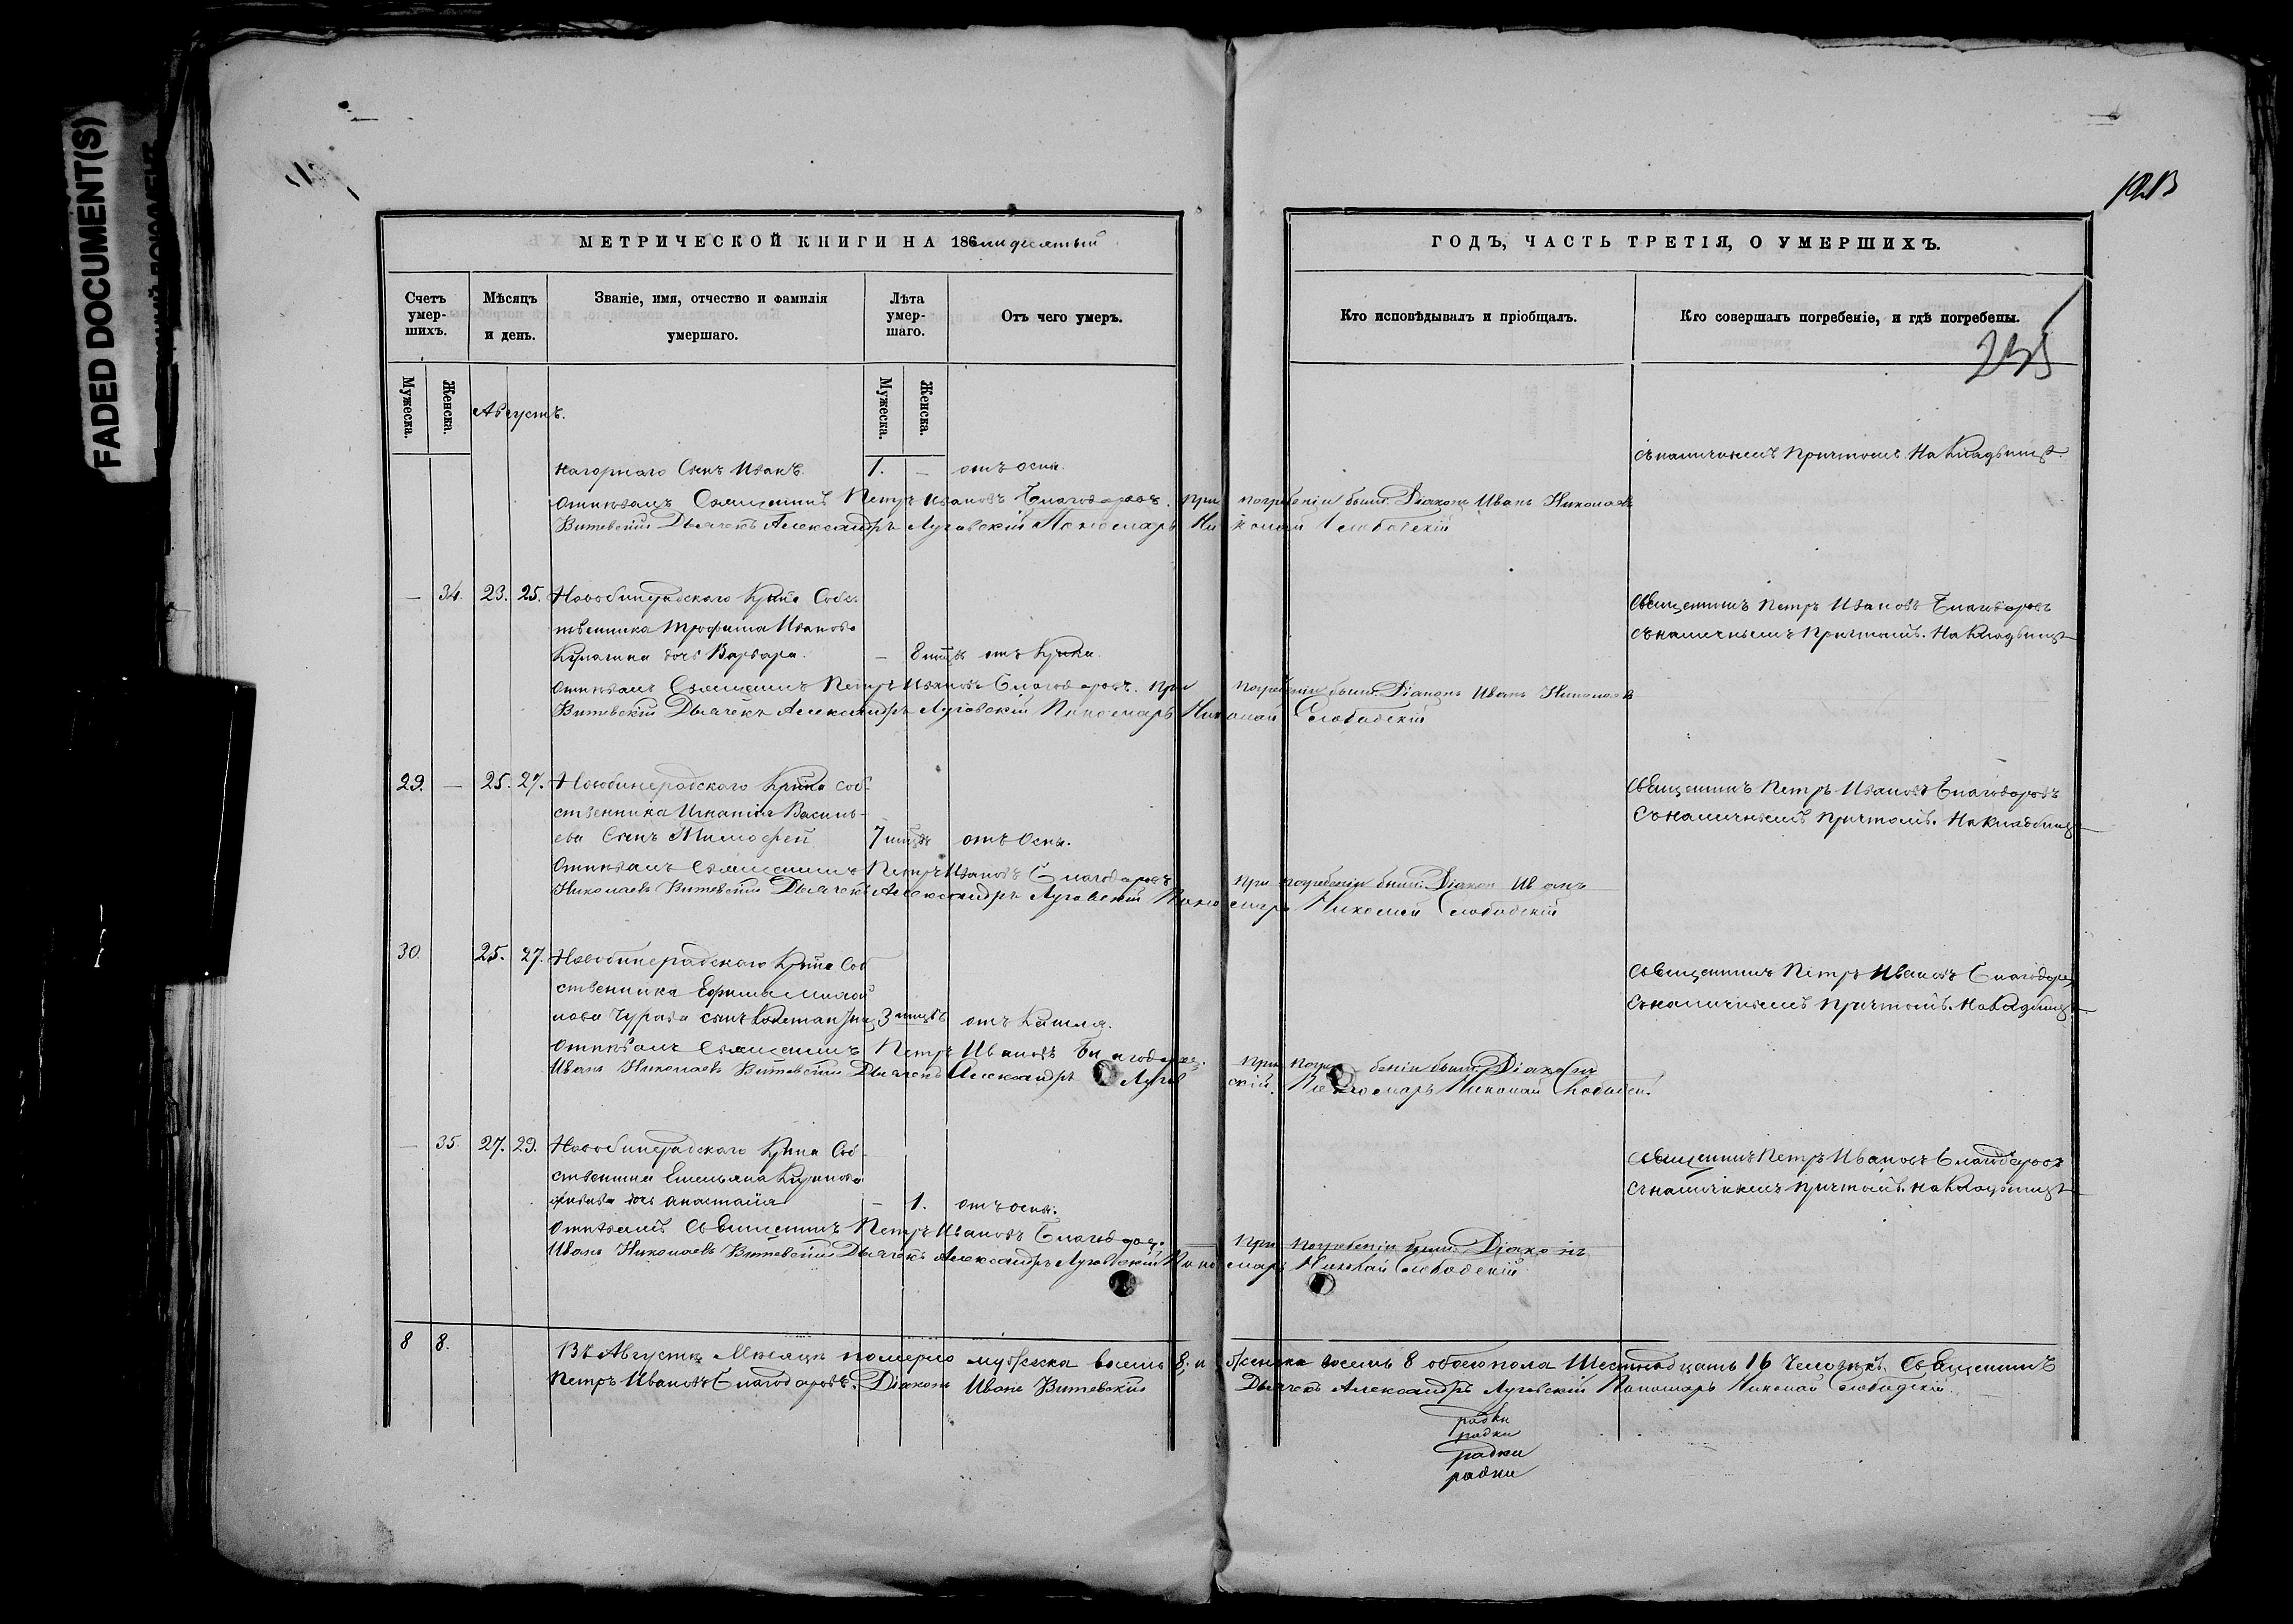 FADED DOCUMENT(S)
МЕТРИЧЕСКОЙ КНИГИ НА 186
ГОДЪ, ЧАСТЬ ТРЕТІЯ, О УМЕРШИХЪ.
235
Счетъ умер-шихъ.
Мѣсяцъ и день.
Званіе, имя, отчество и фамилія умершаго.
Лѣта умер-шаго.
Отъ чего умеръ.
Кто исповѣдывалъ и пріобщалъ.
Кто совершалъ погребеніе, и гдѣ погребены.
Мужеска.
Женска.
Августъ.
Мужеска.
Женска.
Нагорнаго Сынъ Иванъ. 1. — отъ оспы.
съ наличнымъ Причтомъ. На Кладбищѣ.
Отпѣвалъ Священникъ Петръ Ивановъ Благодаровъ. При погребеніи были: Діаконъ Иванъ Николаевъ
Витевскій Дьячекъ Александръ Луговскій Пономарь Николай Слободскій
— 34. 23. 25. Новобинарадскаго Крѣна Собс
твенника Трофима Иванова
Кулагина дочь Варвара. — 8 мцвъ отъ Крика.
Священникъ Петръ Ивановъ Благодаровъ
съ наличнымъ Причтомъ. На Кладбищѣ
Отпѣвалъ Священникъ Петръ Ивановъ Благодаровъ. При погребеніи были: Діаконъ Иванъ Николаевъ
Витевскій Дьячекъ Александръ Луговскій Пономарь Николай Слободскій
29. — 25. 27. Новобинарадскаго Крѣна Соб-
ственника Игнатія Василь-
ева Сынъ Тимофей 7 мцвъ отъ Оспы.
Священникъ Петръ Ивановъ Благодаровъ
съ наличнымъ Причтомъ. На Кладбищѣ
Отпѣвалъ Священникъ Петръ Ивановъ Благодаровъ При погребеніи были: Діаконъ Иванъ
Николаевъ Витевскій Дьячекъ Александръ Луговскій Пономарь Николай Слободскій
30. 25. 27. Новобинарадскаго Крѣна Соб
ственника Ефима
сынъ 3 мцвъ отъ Кашля.
Священникъ Петръ Ивановъ Благодаро
съ наличнымъ Причтомъ. На Кладбищѣ
Отпѣвалъ Священникъ Петръ Ивановъ Благодаро. При погребеніи были: Діаконъ
Иванъ Николаевъ Витевскій Дьячекъ Александръ Луговскій. Пономарь Николай Слободск.
— 35. 27. 29. Новобинарадскаго Крѣна Соб-
ственника Емельяна
дочь Анастасія — 1. отъ оспы.
Священникъ Петръ Ивановъ Благодаровъ
съ наличнымъ Причтомъ. На Кладбищѣ
Отпѣвалъ Священникъ Петръ Ивановъ Благодар. При погребеніи были: Діаконъ
Иванъ Николаевъ Витевскій Дьячекъ Александръ Луговскій Пономарь Николай Слободскій
8 8. Въ Августѣ Мѣсяцѣ померло мужеска восемь 8; и женска восемь 8 обоего пола Шестнадцать 16 Человѣкъ. Священникъ
Петръ Ивановъ Благодаровъ. Діаконъ Иванъ Витевскій Дьячекъ Александръ Луговскій Пономарь Николай Слободскій.
радки
радки
радки
радки